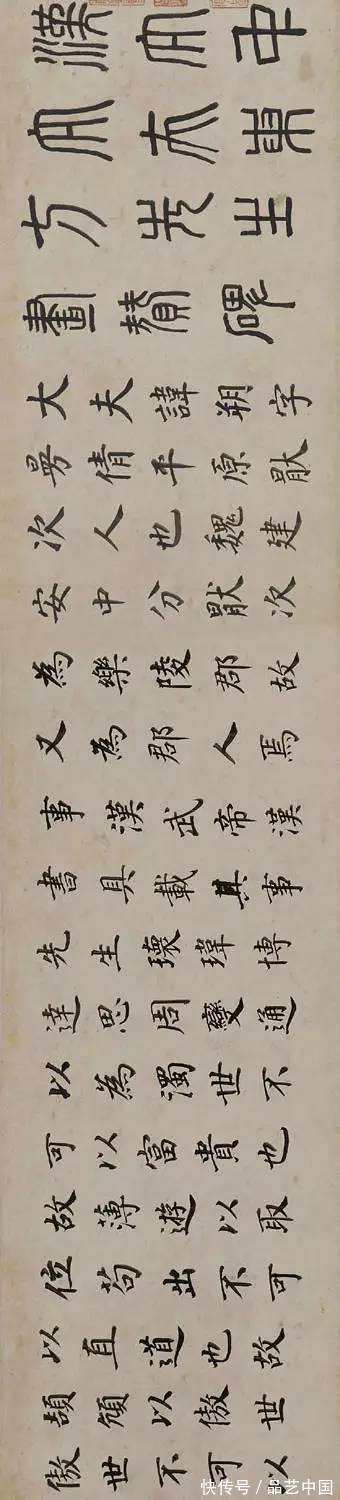 漢大中
大夫東
方先生
畫贊碑
大夫諱朔字
曼倩平原厭
次人也魏建
安中分厭次
為樂陵郡故
又為郡人焉
事漢武帝漢
書具載其事
先生瓌瑋博
達思周變通
以為濁世不
可以富貴也
故薄遊以取
位苟出不可
以直道也故
頡頏以傲世
傲世不可以
快传号／品艺中国